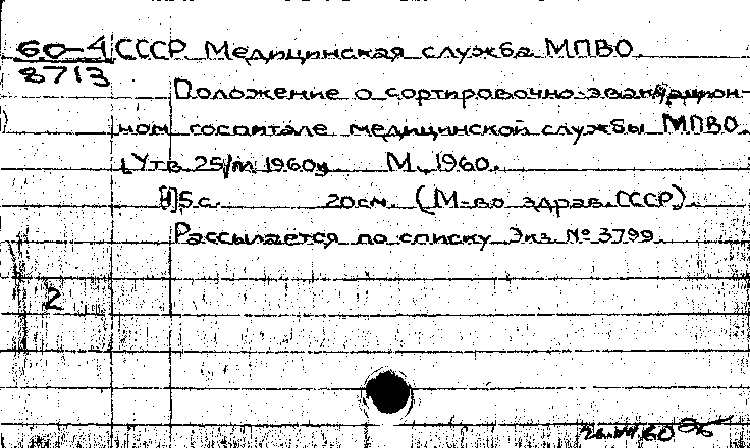 60-4 СССР Медицинская служба МПВО.
8713
Положение о сортировочно-эвакуацион-
ном госпитале медицинской службы МПВО
[Утв. 25/III 1960г. М., 1960.
5 с. 20 см. (М-во здрав. СССР).
Рассылается по списку Экз. № 3799.
2
60